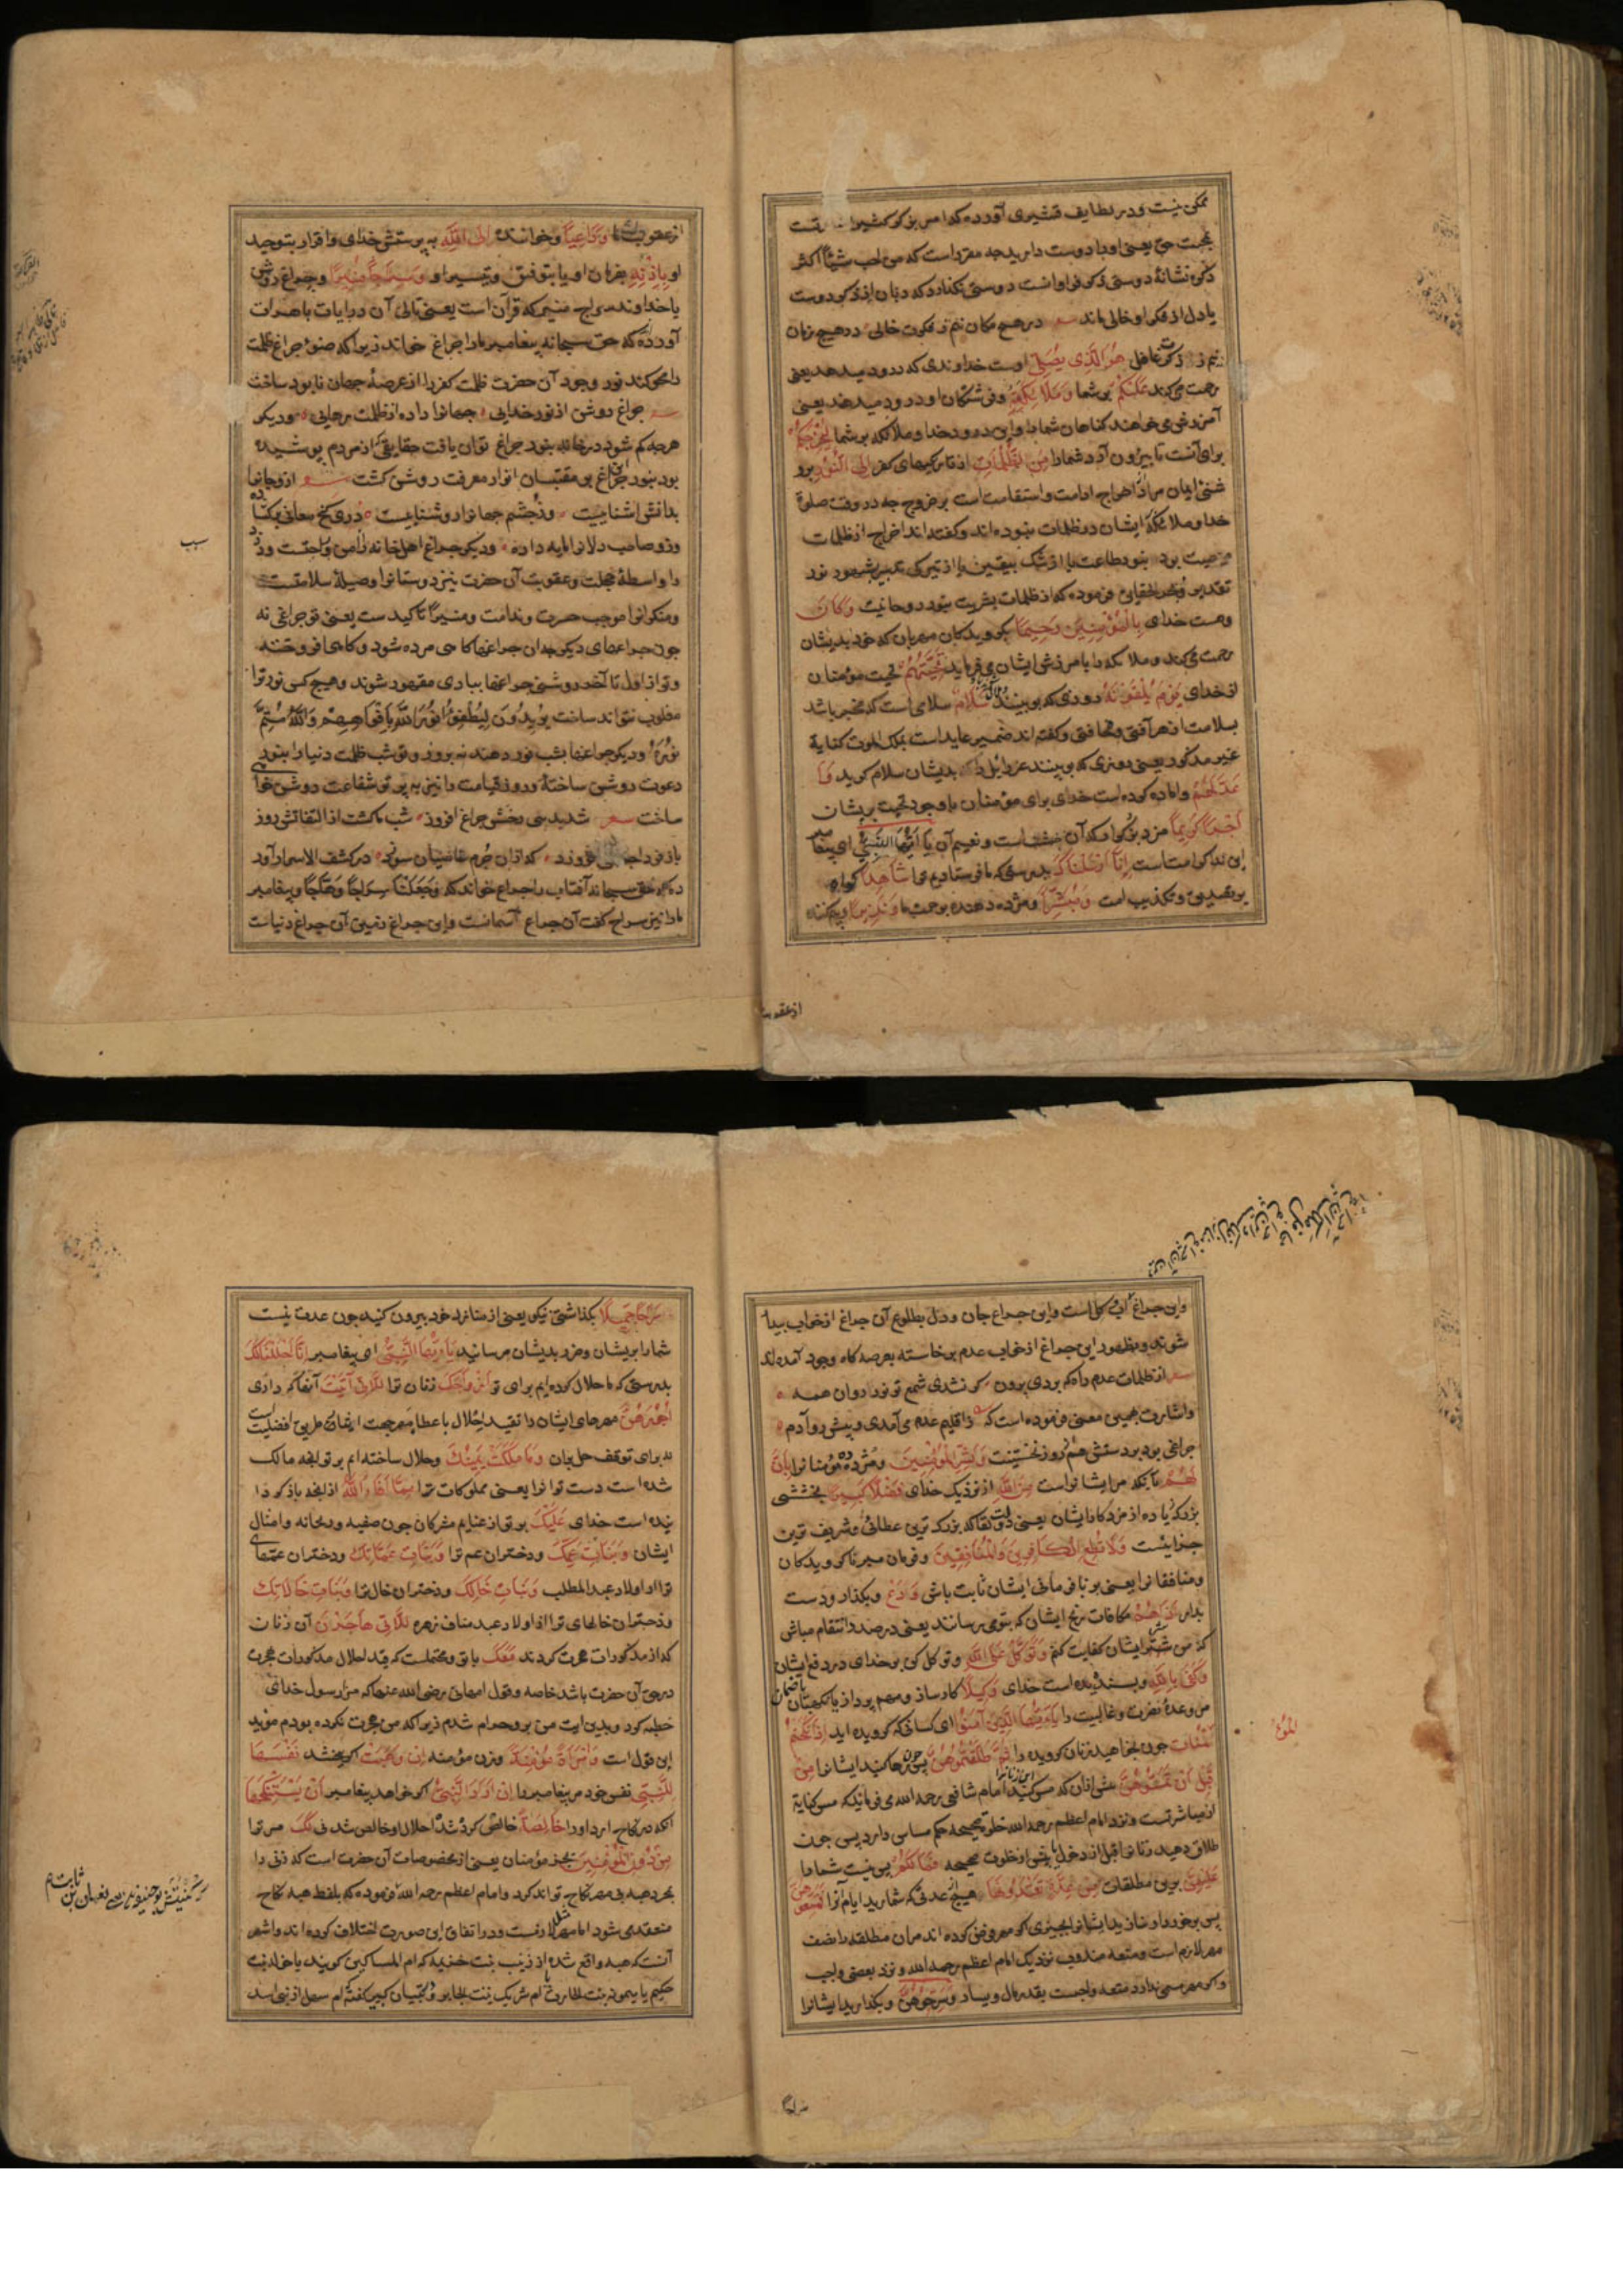 ممکن نیست و در لطایف قشیری آورده که امر بذکر کثیر
بمحبت حق یعنی او را دوست دارید چه مقررست که من احب شیئا اکثر
ذکره نشانهٔ دوستی ذکر فراوانست دوستی نگذارد که زبان از ذکر دوست
یا دل از فکر او خالی ماند در هیچ مکان نیم ز فکرت خالی در هیچ زمان
نیم ز ذکرت غافل هو الذی یصلی اوست خداوندی که درود میدهد یعنی
رحمت میکند علیکم بر شما و ملائکته و فرشتگان او درود میدهند یعنی
آمرزش می خواهند گناهان شما را و این درود خدا و ملائکه بر شما لیخرجکم
برای آنست تا بیرون آرد شما را من الظلمات از تاریکیهای کفر الی النور برو
شنی ایمان مراد از اخراج ادامت و استقامت است بر خروج چه در وقت صلوة
خدا و ملائکه ایشان در ظلمات نبوده اند و گفته اند اخراج از ظلمات
معصیت بود بنور طاعت یا از شک بیقین یا از تیرگی تدبیر بشهود نور
تقدیر و بحر الحقایق فرموده که از ظلمات بشریت بنور روحانیت و کان
و هست خدای بالمؤمنین رحیما بگرویدگان مهربان که خود بدیشان
رحمت میکند و ملائکه را بامرزش ایشان می فرماید تحیتهم تحیت مؤمنان
از خدای یوم یلقونه روزی که ببینند سلام سلامی است که مخبر باشد
بسلامت از هر آفتی و مخافتی و گفته اند ضمیر عایدست بملک الموت کنایة
غیر مذکور یعنی روزی که ببینند عزرائیل را بدیشان سلام گوید و ا
عد لهم و آماده کرده است خدای برای مؤمنان با وجود تحیت بریشان
اجرا کریما مزد بزرگوار که آن بهشتست و نعیم آن یا ایها النبی ای پیغامبر
این ندا کرامتست انا ارسلناک بدرستی که ما فرستادیم ترا شاهدا گواه
بر تصدیق و تکذیب امت و مبشرا و مژده دهنده برحمت ما و نذیرا و بیم کننده
از عقوبت
از عقوبت ما و داعیا و خواننده الی الله به پرستش خدای و اقرار بتوحید
او باذنه بفرمان او یا بتوفیق و تیسیر او و سراجا منیرا و چراغ روشن
یا خداوند سراج منیر که قرآن است یعنی تالی آن در آیات باهرات
آورده که حق سبحانه پیغامبر ما را چراغ خواند زیرا که ضوء چراغ ظلمت
را محو کند نور وجود آن حضرت ظلمت کفر را از عرصهٔ جهان نابود ساخت
چراغ روشن از نور خدایی جهانرا داده از ظلمت رهایی و دیگر
هر چه گم شود در خانه بنور چراغ توان یافت حقایقی که از مردم پوشیده
بود بنور این چراغ بر مقتبسان انوار معرفت روشن گشت ازو جانرا
بدانش آشناییست وزو چشم جهانرا روشناییست در گنج معانی برگشاده
وزو صاحب دلانرا مایه داده و دیگر چراغ اهل خانه را امن و راحتست و دزد
را واسطهٔ خجلت و عقوبت آن حضرت نیز دوستانرا وصیلهٔ سلامتست
سبب
و منکرانرا موجب حسرت و ندامت و منیرا تاکیدست یعنی تو چراغی نه
چون چراغهای دیگر چه آن چراغها گاهی مرده شود و گاهی افروخته
و تو از اول تا آخر روشنی چراغها ببادی مقهور شوند و هیچ کس نور ترا
مغلوب نتواند ساخت یریدون لیطفئوا نور الله بافواههم و الله متم
نوره و دیگر چراغها بشب نور دهند نه بروز و تو شب ظلمت دنیا را بنور
دعوت روشن ساختهٔ و روز قیامت را نیز به پرتو شفاعت روشن خواهی
ساخت شد بدنیی رخش چراغ افروز شب ما گشت از التفاتش روز
باز فردا چراغ افروزد که از آن جرم عاصیان سوزد در کشف الاسرار آور
ده که حق سبحانه آفتاب را چراغ خواند که و جعلنا سراجا وهاجا و پیغامبر
ما را نیز سراج گفت آن چراغ آسمانست و این چراغ زمین آن چراغ دنیاست
و این چراغ آب و گل است و این چراغ جان و دل بطلوع آن چراغ از خواب بیدار
شوند و بظهور این چراغ از خواب عدم برخاسته بعرصه گاه وجود آمده اند
از ظلمات عدم راه که بردی برون گر نشدی شمع تو نور روان همه
و اشارت بهمین معنی فرموده است که از اقلیم عدم می آمدی و پیش رو آدم
چراغی بود بر دستش هم از روز نخستینت و بشر المؤمنین و مژده ده مؤمنانرا بان
لهم بآنکه مر ایشانراست من الله از نزدیک خدای فضلا کبیرا بخششی
بزرگ زیاده از مزد کارد ایشان یعنی دولت لقا که بزرگ ترین عطائی و شریف ترین
جزاییست و لا تطع الکافرین و المنافقین و فرمان مبر ناگرویدگان
و منافقانرا یعنی بر نافرمانی ایشان ثابت باش و دع و بگذار و دست
بدار اذاهم مکافات رنج ایشان که بتو می رسانند یعنی در صدد انتقام مباش
که من شر ایشان کفایت کنم و توکل علی الله و توکل کن بر خدای در دفع ایشان
و کفی بالله و بسندیده است خدای وکیلا کارساز و مهم پرداز یا نگهبان یا ضمان
مر وعدهٔ نصرت و غالبیت را یا ایها الذین آمنوا ای کسانی که گرویده اید اذا نکحتم
المؤمنات چون بخواهید زنان گرویده را ثم طلقتموهن پس چون رها کنید ایشانرا من
قبل ان تمسوهن پیش از آن که مس کنید این زنانرا امام شافعی رحمه الله می فرماید که مس کنایة
از مباشرتست و نزد امام اعظم رحمه الله خلوة صحیحه حکم مساس دارد پس چون
طلاق دهید زنانرا قبل از دخول یا پیش از خلوت صحیحه فما لکم پس نیست شما را
علیهن برین مطلقات من عدة تعتدونها هیچ از عدتی که شمارید ایام آنرا فمتعوهن
پس برخوردار سازید ایشانرا بچیزی اگر مهر فرض کرده اند مر آن مطلقه را نصف
مهر لازم است و متعه مندوب نزدیک امام اعظم رحمه الله و نزد بعضی واجب
و اگر مهر مسمی ندارد متعه واجبست بقدر مال و یسار و سرحوهن و بگذارید ایشانرا
سراحا
سراحا جمیلا بگذاشتن نیکو یعنی از منازل خود بیرون کنید چون عدت نیست
شما را بریشان و ضرر بدیشان مرسانید یا ایها النبی ای پیغامبر انا احللنا لک
بدرستی که ما حلال کرده ایم برای تو ازواجک زنان ترا اللاتی آتیت آنها که داده
اجورهن مهرهای ایشان را تقیید احلال باعطا مهر جهت ایثار طریق افضلیت است
نه برای توقف حل بران و ما ملکت یمینک و حلال ساخته ایم بر تو آنچه مالک
شده است دست تو آنرا یعنی مملوکات ترا مما افاء الله از آنچه باز گردا
نیده است خدای علیک بر تو از غنایم مشرکان چون صفیه و ریحانه و امثال
ایشان و بنات عمک و دختران عم ترا و بنات عماتک و دختران عمهای
ترا از اولاد عبد المطلب و بنات خالک و دختران خال ترا و بنات خالاتک
و دختران خالهای ترا از اولاد عبد مناف زهره اللاتی هاجرن آن زنان
که از مذکورات هجرت کردند معک با تو و محتملست که قید احلال مذکورات هجرت
در حق آن حضرت باشد خاصه و قول ام هانی رضی الله عنها که مرا رسول خدای
خطبه کرد و بدین آیت من برو حرام شدم زیرا که من هجرت نکرده بودم مؤید
این قول است و امراة مؤمنة و زن مؤمنه ان وهبت اگر بخشد نفسها
للنبی نفس خود مر پیغامبر را ان اراد النبی اگر خواهد پیغامبر ان یستنکحها
آنکه در نکاح آرد او را خالصة خالص کرده شد احلال او خالص شدنی لک مر ترا
من دون المؤمنین بجز مؤمنان یعنی از مخصوصات آن حضرت است که زنی را
بمجرد هبه بی مهر نکاح تواند کرد و امام اعظم رحمه الله فرموده که بلفظ هبه نکاح
کنیتش بوحنیفه نعمان بن ثابت
منعقد می شود اما مهر لازمست و در اتفاق این صورت اختلاف کرده اند و اشهر
آنست که هبه واقع شده از زینب بنت خزیمه که ام المساکین گویند یا خوله بنت
حکیم یا میمونه بنت الحارث یا ام شریک بنت جابر و در تبیان کبیر گفته ام سهل از بنی اسد